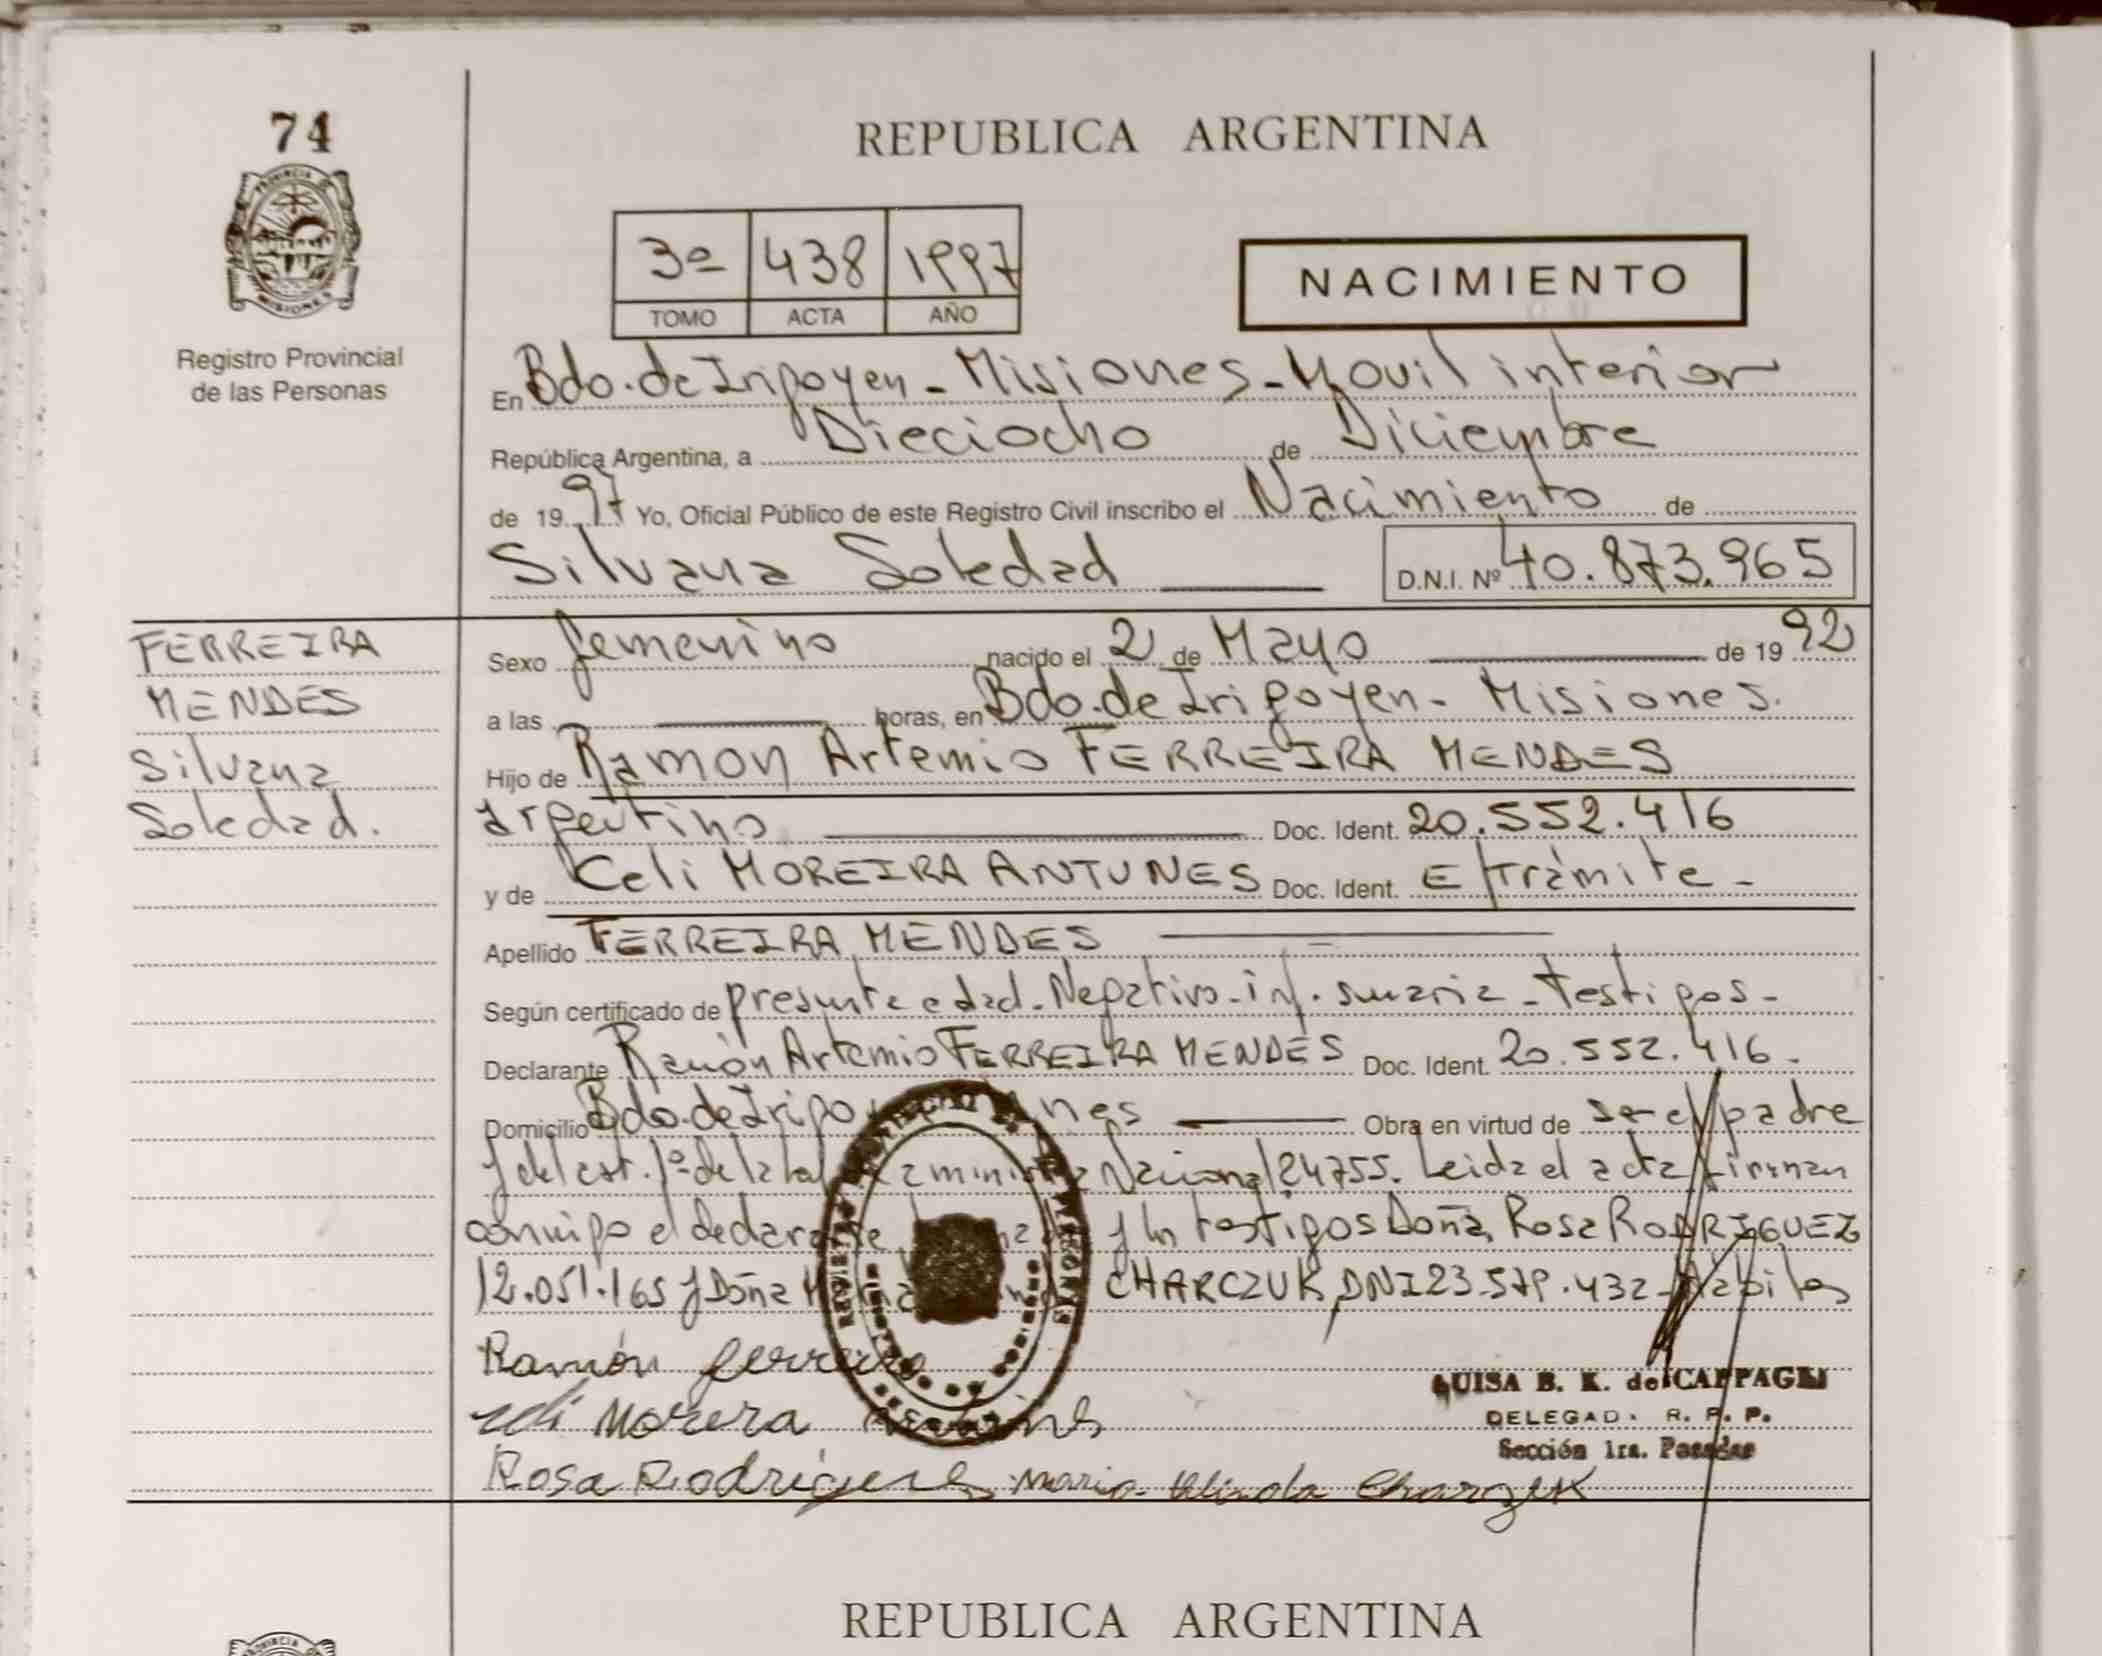 74
REPUBLICA ARGENTINA
PROVINCIA DE
MISIONES
Registro Provincial
de las Personas
3º 438 1997
TOMO ACTA AÑO
NACIMIENTO
En Bdo. de Irigoyen - Misiones - Movil interior
República Argentina, a Dieciocho de Diciembre
de 1997 Yo, Oficial Público de este Registro Civil inscribo el Nacimiento de
Silvana Soledad D.N.I. Nº 40.873.965
FERREIRA
MENDES
Silvana
Soledad.
Sexo femenino nacido el 2 de Mayo de 1992
a las horas, en Bdo. de Irigoyen - Misiones.
Hijo de Ramon Artemio FERREIRA MENDES
argentino Doc. Ident. 20.552.416
y de Celi MOREIRA ANTUNES Doc. Ident. E/trámite -
Apellido FERREIRA MENDES
Según certificado de presunta edad - Negativo - inf. sumaria - Testigos -
Declarante Ramón Artemio FERREIRA MENDES Doc. Ident. 20.552.416.
Domicilio Bdo. de Irigo nes Obra en virtud de ser el padre
y del art. 1º de la Nacional 24755. Leida el acta firman
conmigo el declarante y los testigos Doña Rosa RODRIGUEZ
12.051.165 y Doña CHARCZUK DNI 23.579.432 - Habiles
Ramón ferreira
Celi Morera
Rosa Rodriguez Maria Charczuk
LUISA B. K. de CAPPAGLI
DELEGADA R. P. P.
Sección 1ra. Posadas
REPUBLICA ARGENTINA
PROVINCIA DE